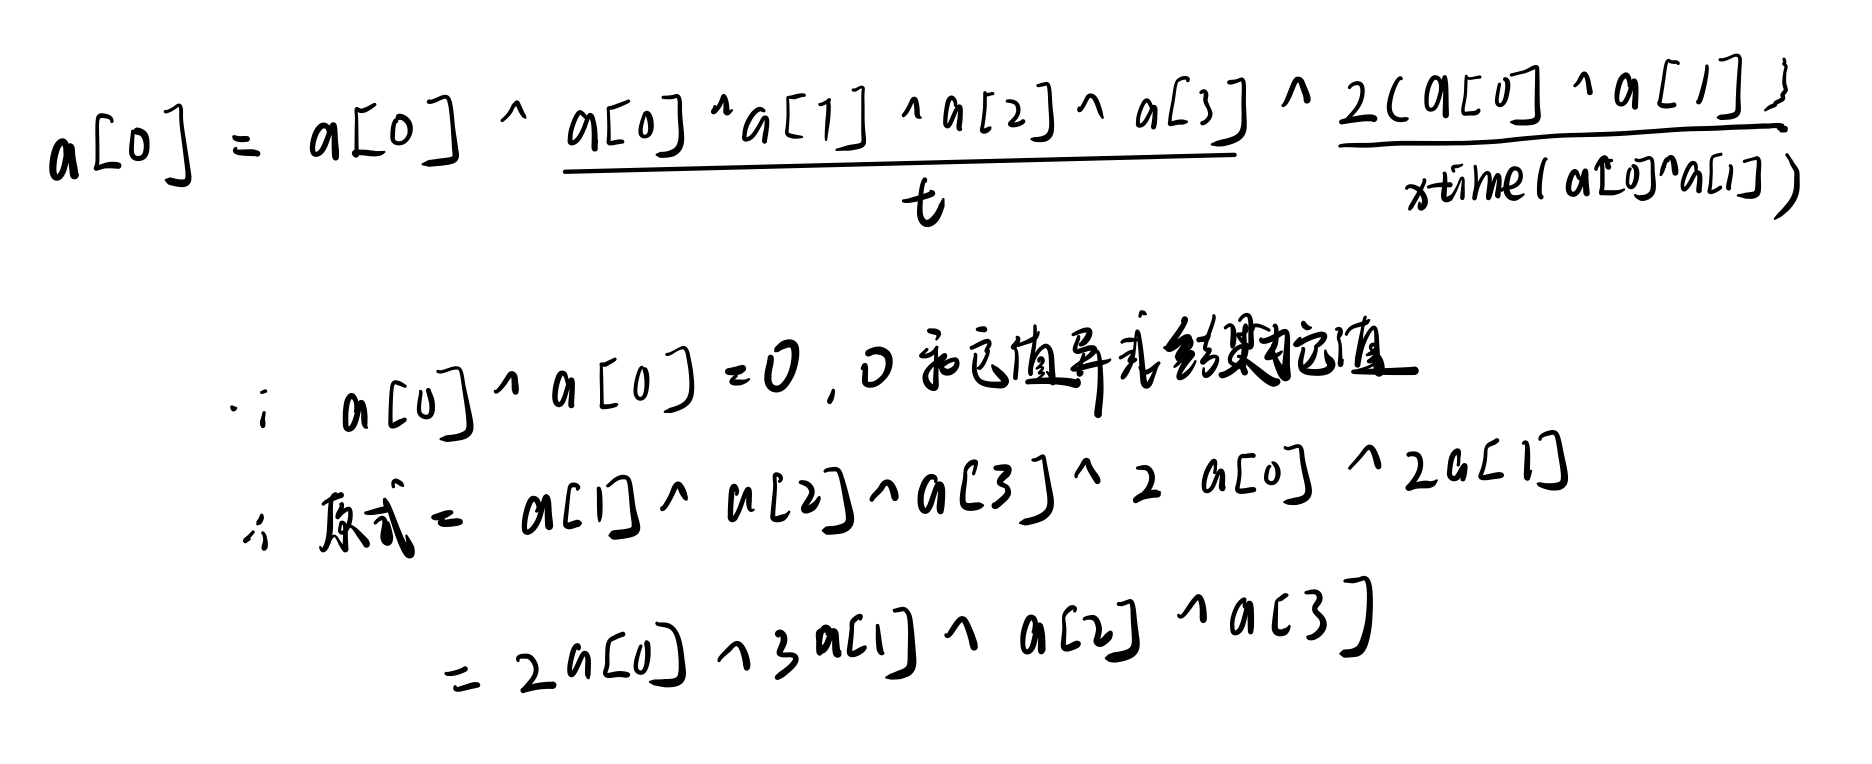 a[0] = a[0] ^ a[0] ^ a[1] ^ a[2] ^ a[3] ^ 2(a[0] ^ a[1])
t xtime(a[0]^a[1])
∵ a[0] ^ a[0] = 0, 0和它值异或结果为它值
∴ 原式 = a[1] ^ a[2] ^ a[3] ^ 2 a[0] ^ 2a[1]
= 2a[0] ^ 3a[1] ^ a[2] ^ a[3]